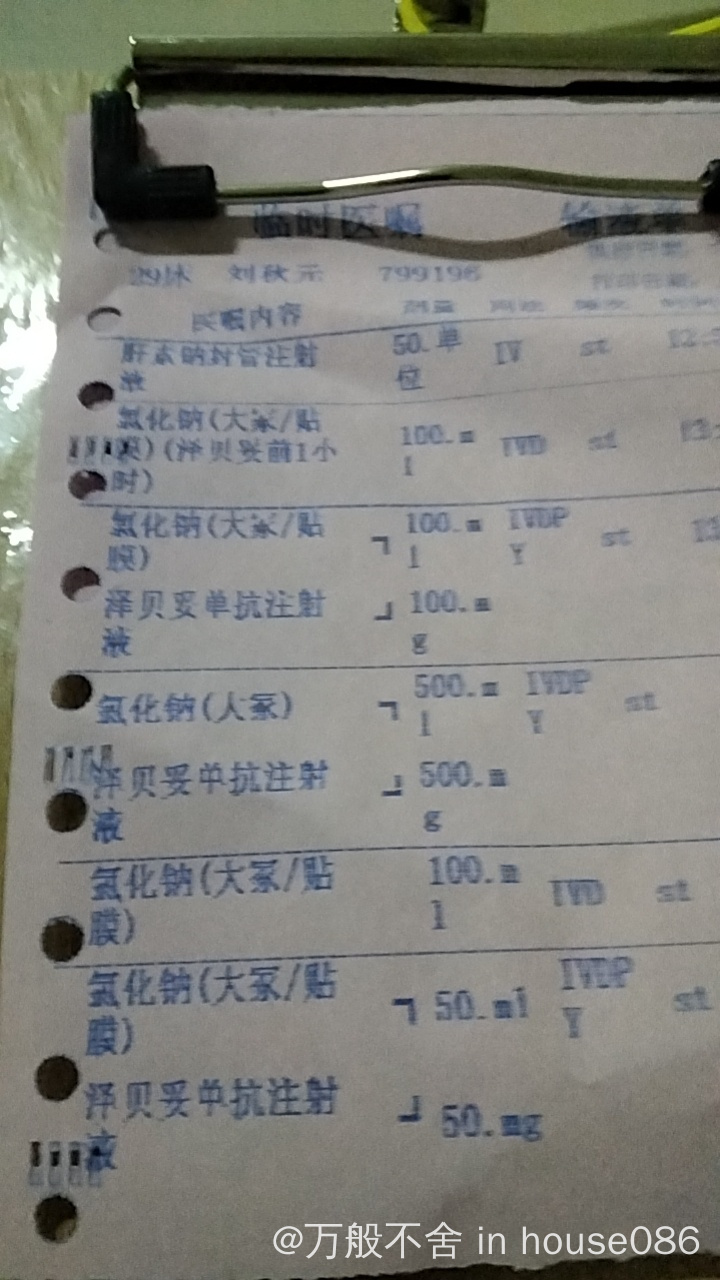 临时医嘱 输液单
29床 刘秋元 799196
医嘱内容 剂量 用途 频次
肝素钠封管注射 50.单 IV st
液 位
氯化钠(大冢/贴 100.m IVD st
膜)(泽贝妥前1小 l
时)
氯化钠(大冢/贴 ┐ 100.m IVDP st
膜) l Y
泽贝妥单抗注射 ┘ 100.m
液 g
氯化钠(大冢) ┐ 500.m IVDP st
l Y
泽贝妥单抗注射 ┘ 500.m
液 g
氯化钠(大冢/贴 100.m IVD st
膜) l
氯化钠(大冢/贴 ┐ 50.ml IVDP st
膜) Y
泽贝妥单抗注射 ┘ 50.mg
液
@万般不舍 in house086